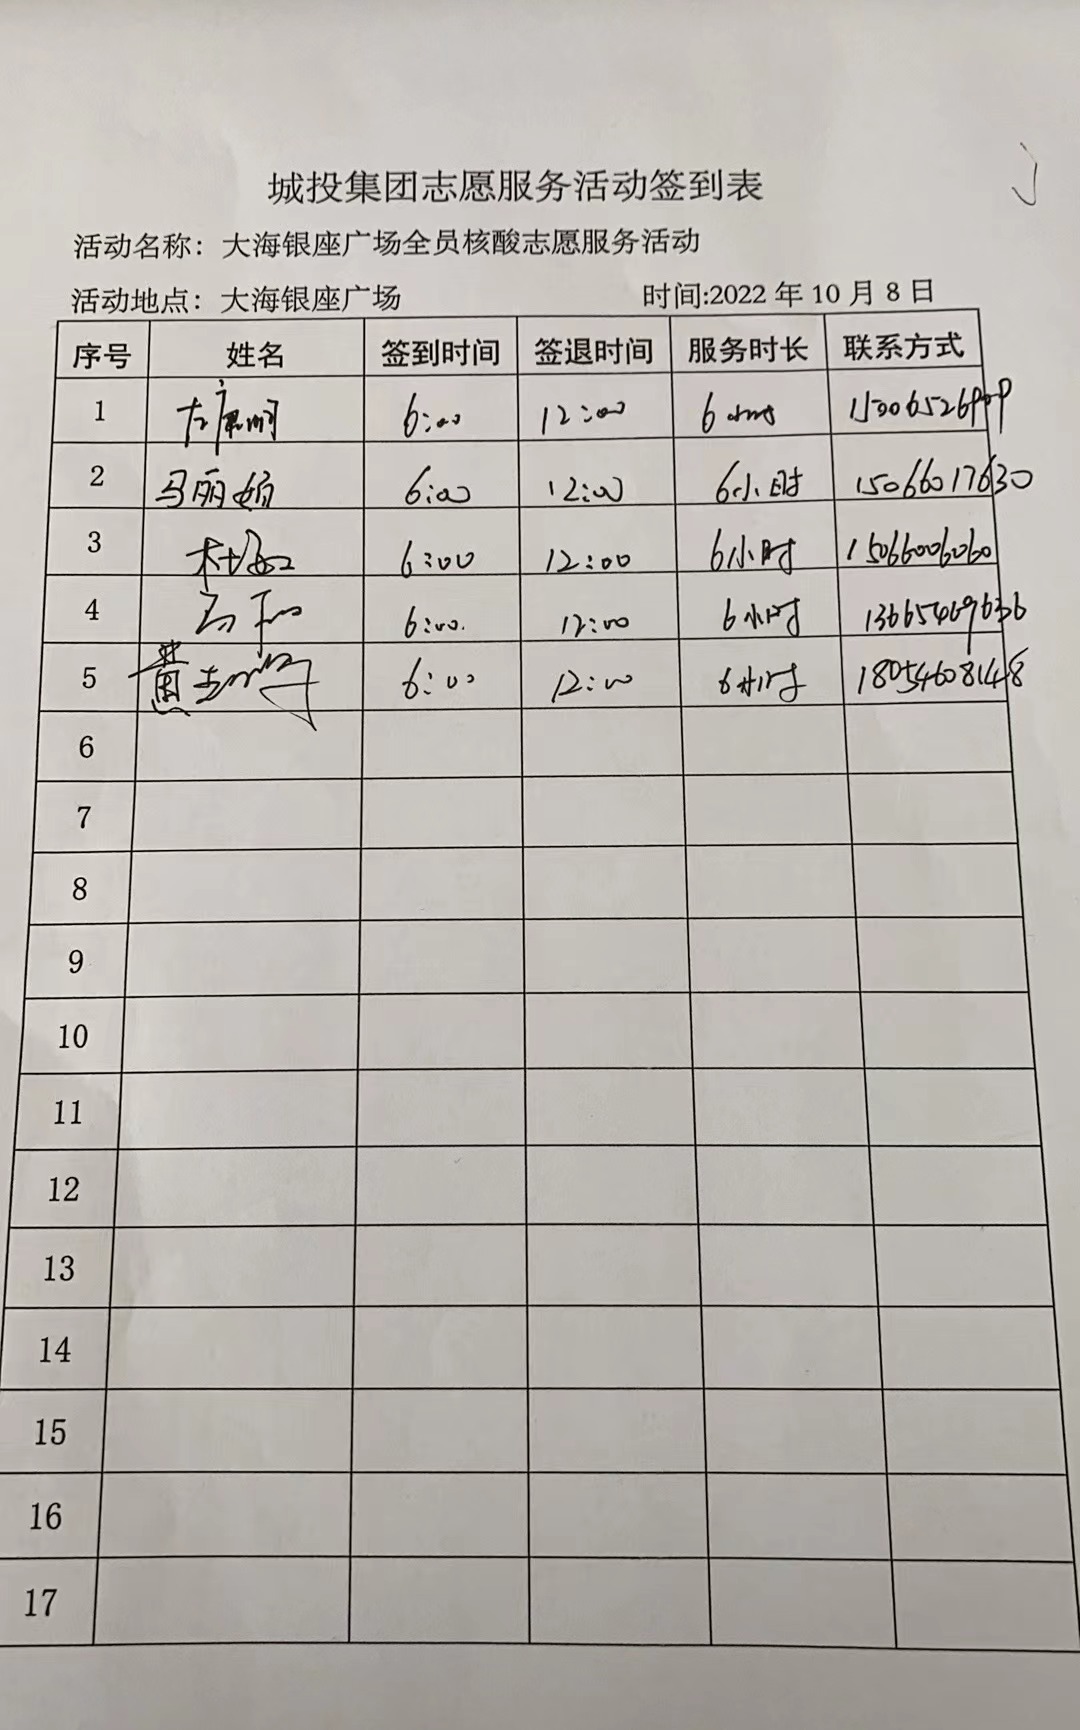 城投集团志愿服务活动签到表
活动名称：大海银座广场全员核酸志愿服务活动
活动地点：大海银座广场 时间:2022 年 10 月 8 日
序号 姓名 签到时间 签退时间 服务时长 联系方式
1 6:00 12:00 6小时
2 马丽娟 6:00 12:00 6小时 15066017630
3 6:00 12:00 6小时 15066006060
4 6:00. 12:00 6小时 13665469636
5 黄 6:00 12:00 6小时 18054608148
6
7
8
9
10
11
12
13
14
15
16
17